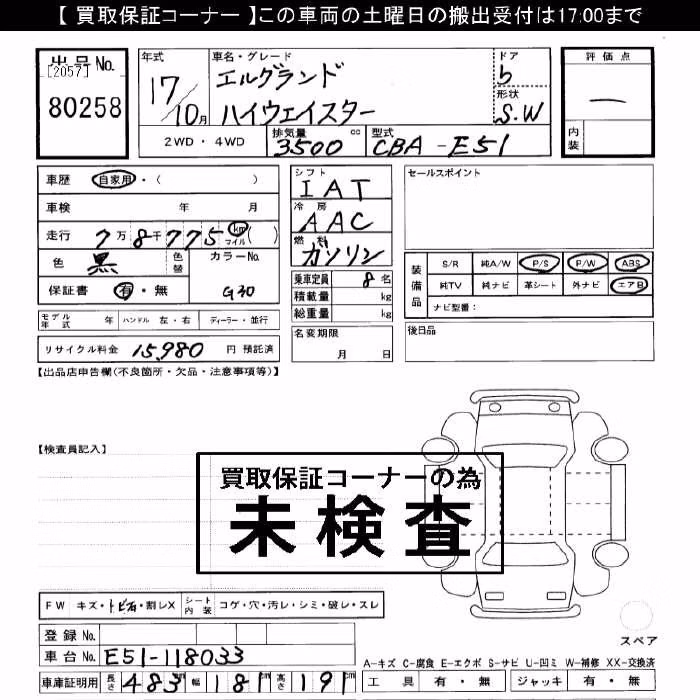 【 買取保証コーナー 】この車両の土曜日の搬出受付は17:00まで
出品No.
[2057]
80258
年式 17 / 10月
車名・グレード エルグランド ハイウェイスター
ドア 5
形状 S.W
評価点 —
内装
2WD ・ 4WD
排気量 3500 cc
型式 CBA - E51
車歴 自家用 ・ ( )
車検 年 月
走行 7万8千775 km マイル ( )
色 黒 色替
カラーNo. G30
保証書 有・無
モデル年式 年 ハンドル 左・右 ディーラー・並行
リサイクル料金 15,980 円 預託済
シフト IAT
冷房 AAC
燃料 ガソリン
乗車定員 8名
積載量 kg
総重量 kg
名変期限
月 日
セールスポイント
装備品 S/R 純A/W P/S P/W ABS
純TV 純ナビ 革シート 外ナビ エアB
ナビ型番:
後日品
【出品店申告欄(不良箇所・欠品・注意事項等)】
【検査員記入】
買取保証コーナーの為
未検査
FW キズ・トビ石・割レX シート内装 コゲ・穴・汚レ・シミ・破レ・スレ
スペア
登録 No.
車台 No. E51-118033
車庫証明用 長さ 483 cm 幅 181 cm 高さ 191 cm
A-キズ C-腐食 E-エクボ S-サビ U-凹ミ W-補修 XX-交換済
工具 有・無 ジャッキ 有・無